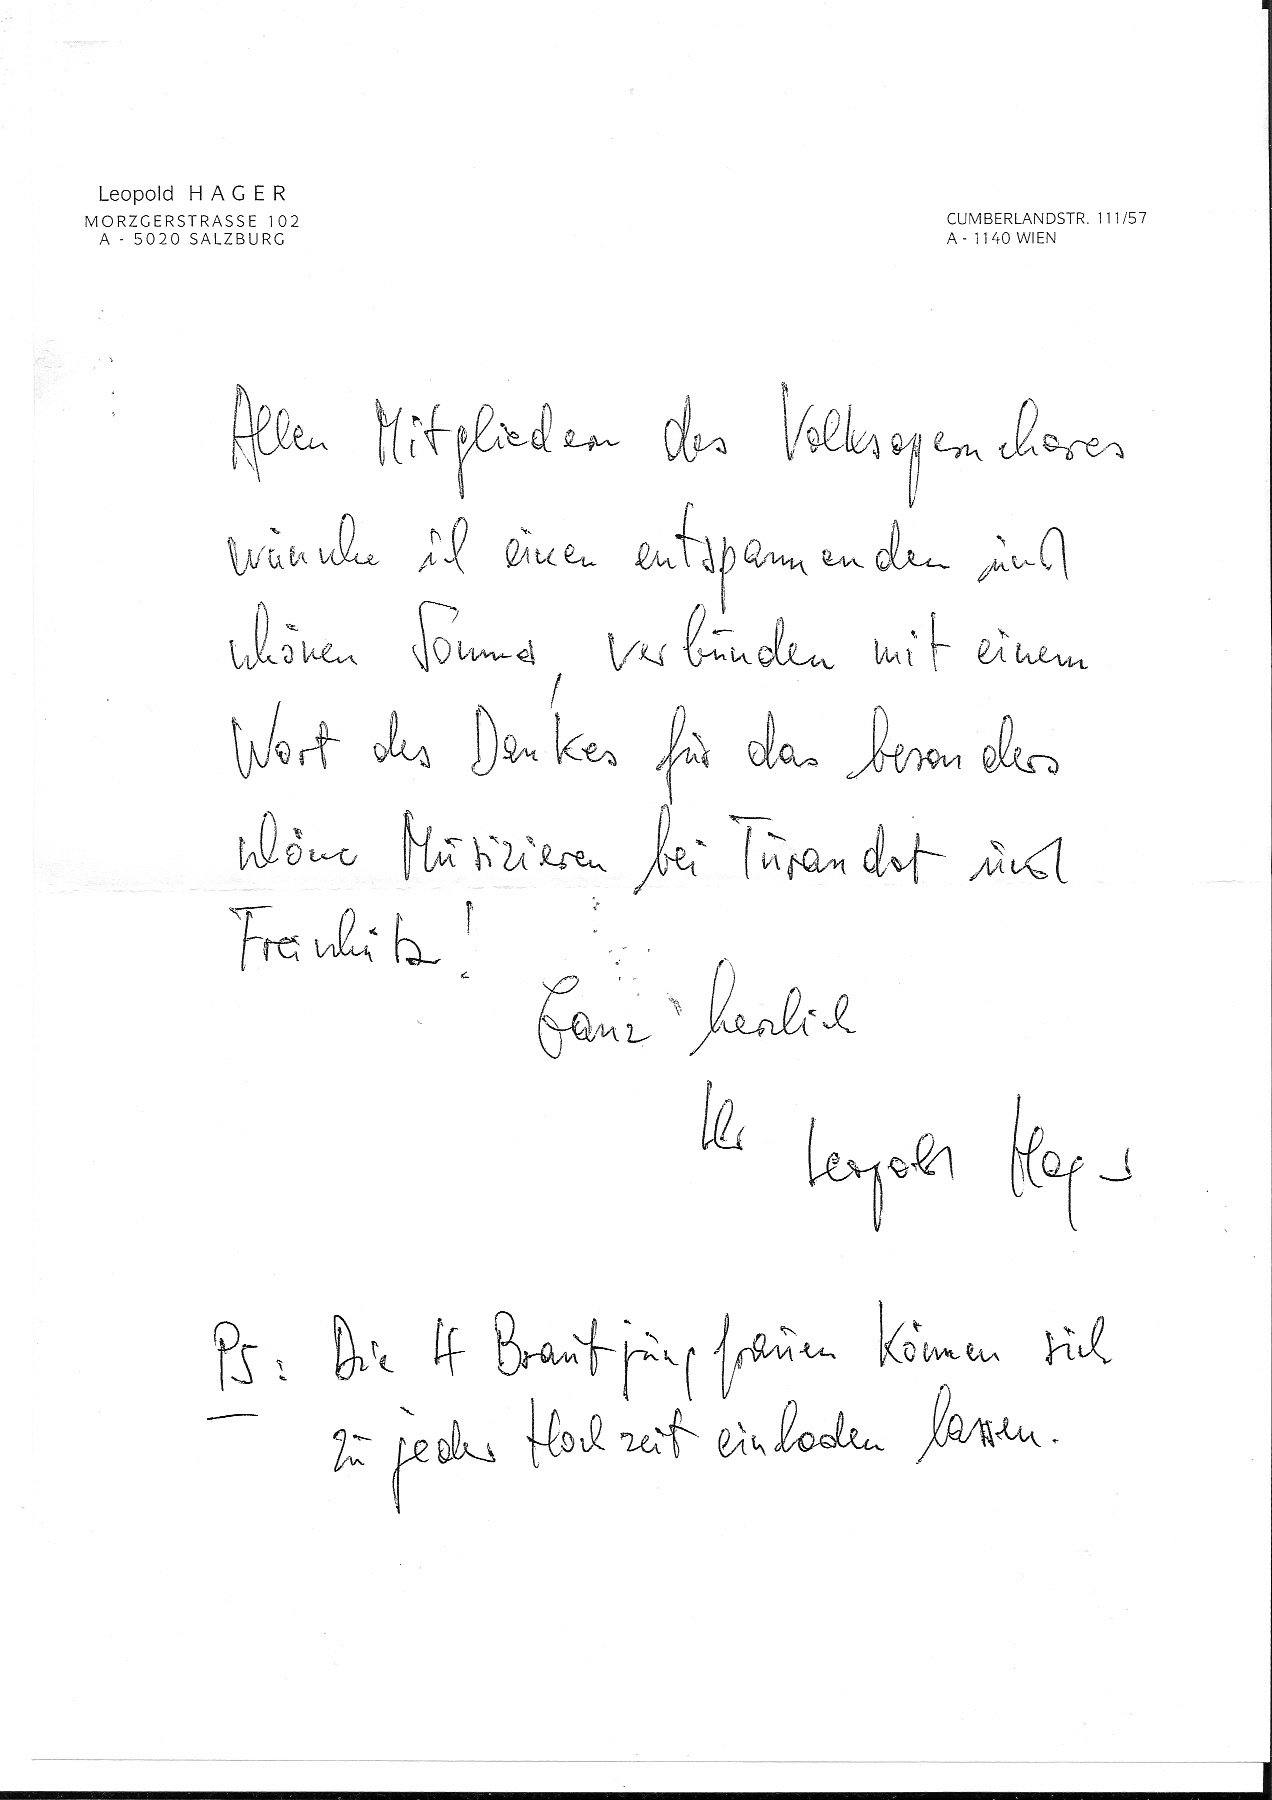 Leopold HAGER
MORZGERSTRASSE 102
A - 5020 SALZBURG
CUMBERLANDSTR. 111/57
A - 1140 WIEN
Allen Mitgliedern des Volksopernchores
wünsche ich einen entspannenden und
schönen Sommer, verbunden mit einem
Wort des Dankes für das besonders
schöne Musizieren bei Turandot und
Freischütz!
Ganz herzlich
Ihr Leopold Hager
PS: Die 4 Brautjungfrauen können sich
zu jeder Hochzeit einladen lassen.